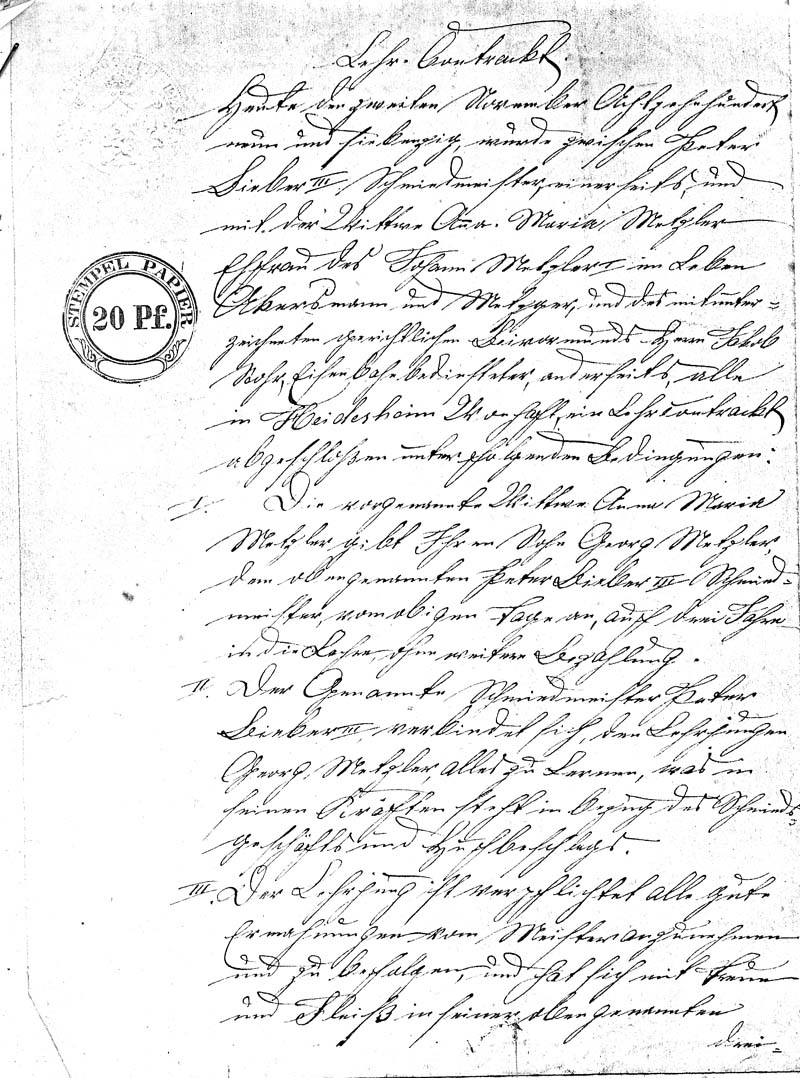 Lehr-Contrackt.
Heute den zweiten November Achtzehnhundert
neun und siebenzig, wurde zwischen Peter
Bieber III, Schmiedmeister, einerseits, und
mit der Wittwe Anna Maria Metzler
Ehfrau des Johann Metzler I im Leben
Akersmann und Metzger, und des mitunter-
zeichneten gerichtlichen Beivormunds Herrn Jakob
Eisenbahnbediensteter, anderseits, alle
in Heidesheim Wonhaft, ein Lehrcontrackt
abgeschloßen unter folgenden Bedingungen:
I. Die vorgenannte Wittwe Anna Maria
Metzler gibt Ihren Sohn Georg Metzler,
dem obengenannten Peter Bieber III Schmied-
meister, vom obigen Tage an, auf drei Jahre
in die Lehre, ohne weitere Bezahlung.
II. Der Genannte Schmiedmeister Peter
Bieber III, verbindet sich, den Lehrjungen
Georg Metzler, alles zu Lernen, was in
seinen Kräften steht in bezug des Schmieds-
geschäfts und Hufbeschlags.
III. Der Lehrjung ist verpflichtet alle gute
Ermahnungen vom Meister anzunehmen
und zu befolgen, und hat sich mit Treue
und Fleiß in seiner oben genannten
drei-
STEMPEL PAPIER
20 Pf.